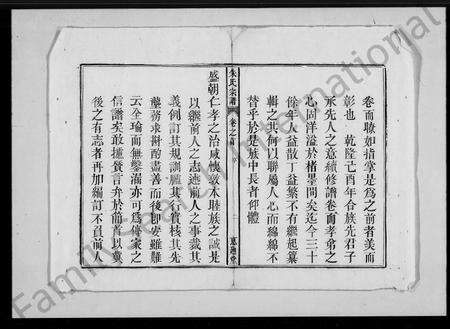 卷而瞭如指掌是爲之前者美而
彰也 乾隆己酉年合族先君子
承先人之意續修譜卷而孝弟之
心固洋溢於楮墨間矣迄今三十
餘年人益散丁益繁不有繼起纂
輯之其何以聯屬人心而綿綿不
替乎於是族中長者仰體
朱氏宗譜 卷之首
惠迪堂
盛朝仁孝之治咸懷敦本睦族之誠是
以繼前人之志述前人之事裁其
義例訂其規訓臚其行實核其先
塋務求斟酌盡善而後即安雖難
云全瑜而無纇滿亦可爲傳家之
信譜矣敢摭質言弁於簡首以冀
後之有志者再加編訂不負前人
FamilySearch International